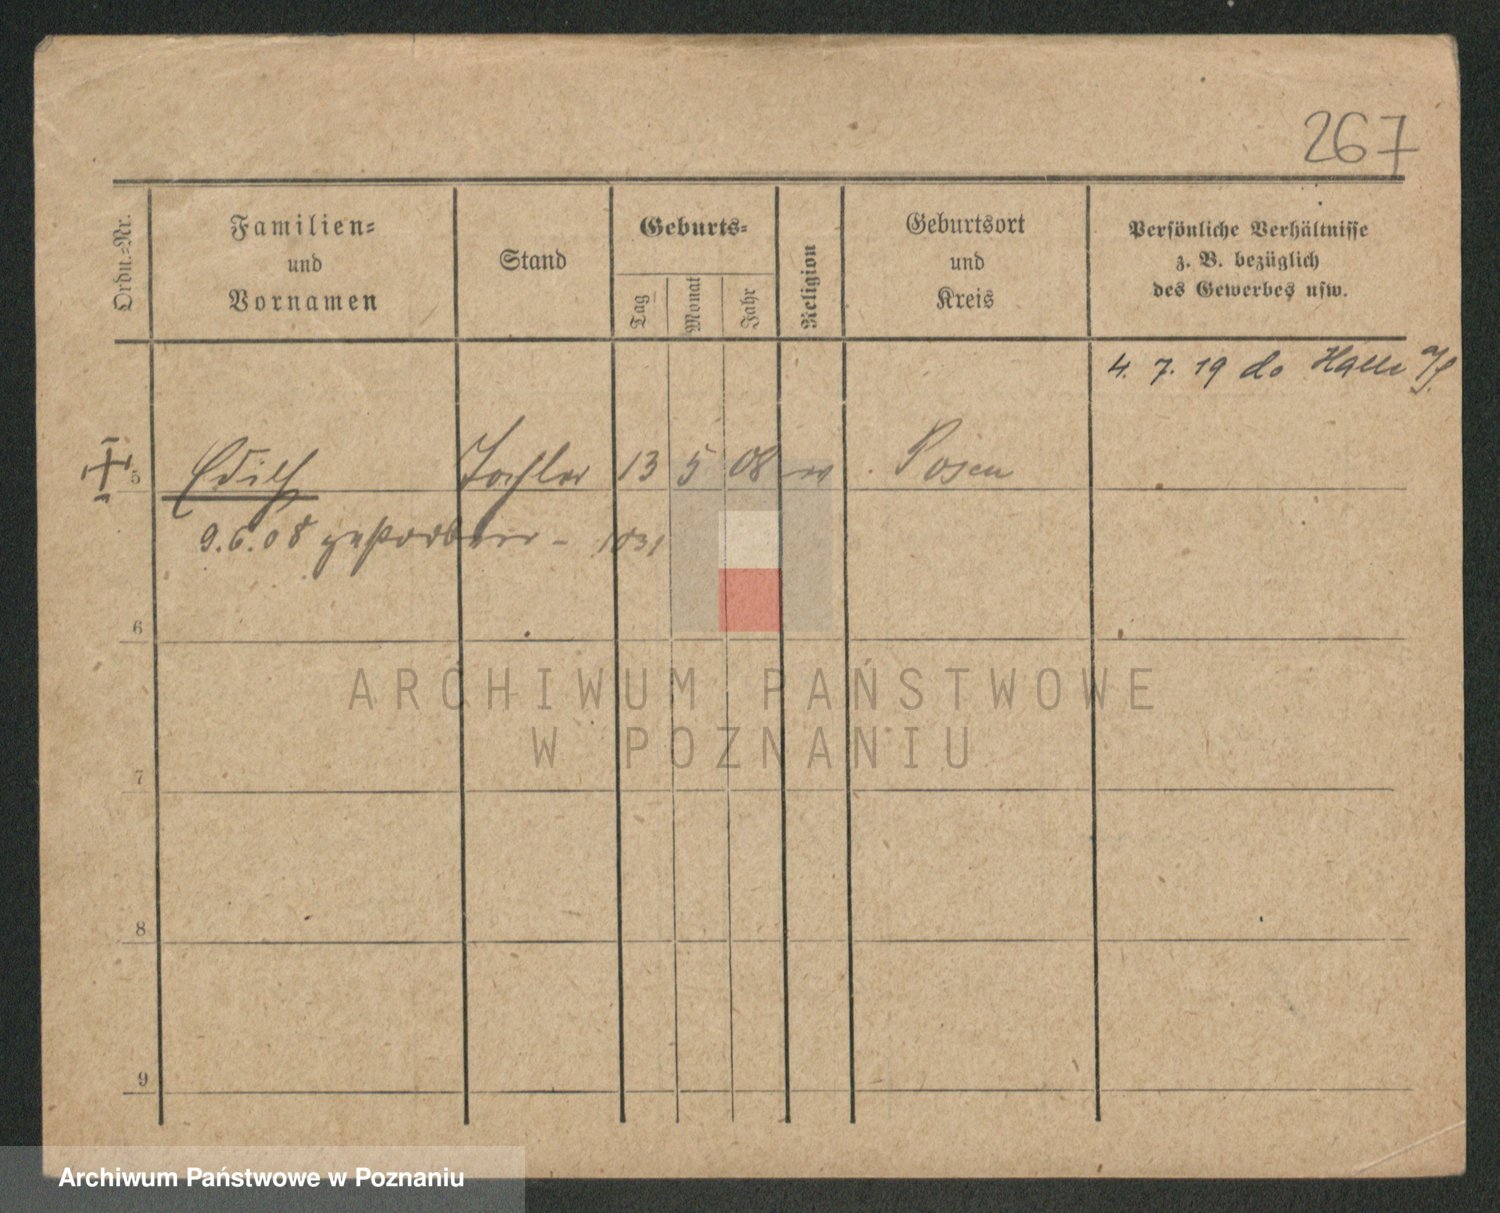 267
Ordn.=Nr.
Familien=
und
Vornamen
Stand
Geburts=
Tag
Monat
Jahr
Religion
Geburtsort
und
Kreis
Persönliche Verhältnisse
z. B. bezüglich
des Gewerbes usw.
4. 7. 19 do Halle a/S.
5 Edith Tochter 13 5 08 Posen
9.6.08 gestorben – 1031
6
ARCHIWUM PAŃSTWOWE
W POZNANIU
7
8
9
Archiwum Państwowe w Poznaniu